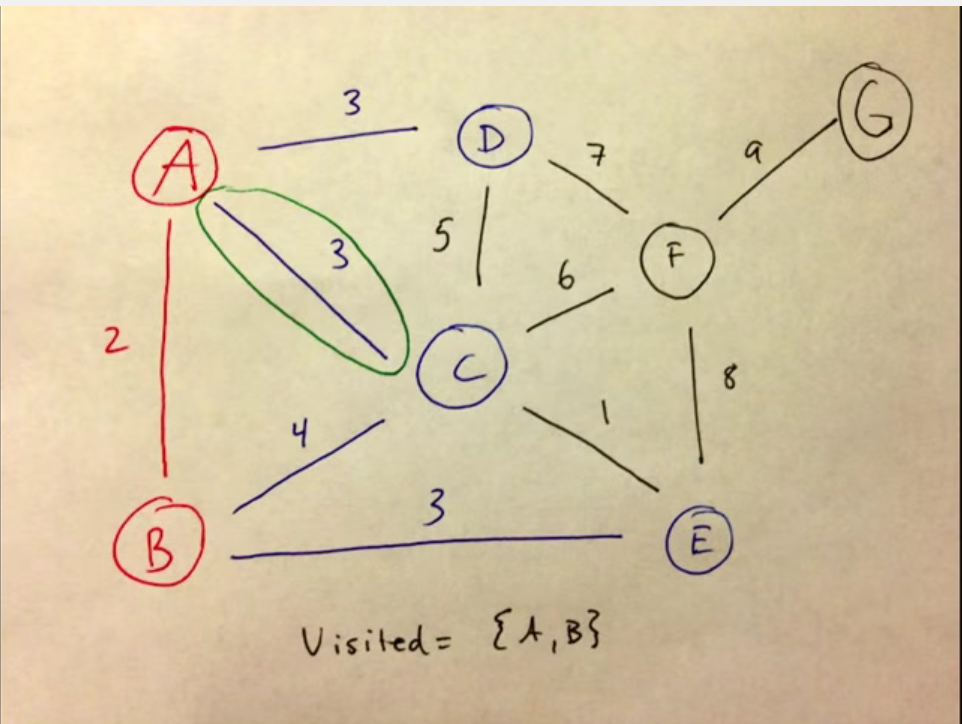 3
A
D
7
9
G
5
3
F
6
2
C
8
1
4
3
B
E
Visited= {A,B}